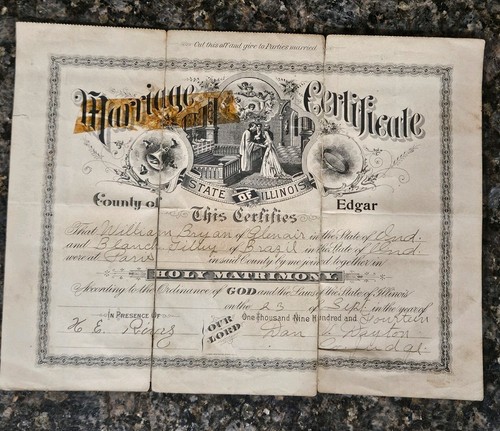 Cut this off and give to Parties married
Marriage Certificate
STATE OF ILLINOIS
County of Edgar
This Certifies
That William Bryan of in the State of Ind.
and Blanch of Brazil in the State of Ind
were at Paris in said County by me joined together in
HOLY MATRIMONY
According to the Ordinance of GOD and the Laws of the State of Illinois
on the 23 of Sept in the year of
OUR LORD One Thousand Nine Hundred and fourteen
IN PRESENCE OF
H. E. Dan